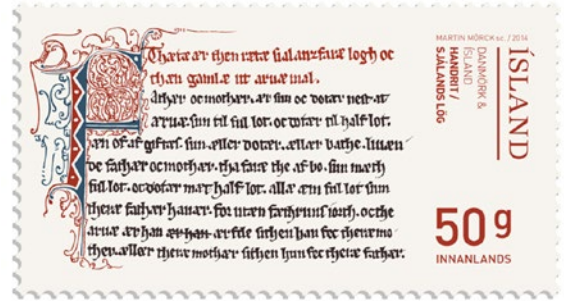 Thætæ ær then rætæ siælanzfaræ logh oc
thæn gamlæ ut aruæ mal.
Fathær oc mothær. ær sun oc dotær nest at
aruæ sun til ful lot. oc dotær til half lot.
æn of af giftæs. sun. æller dotær. æller bathe. liuæn
de fathær oc mothær. tha faræ the af bo. sun mæth
ful lot. oc dotær mæth half lot. allæ æm ful lot sum
theræ fathær hauær. for utæn
aruæ ær han ær han ær
æller theræ mothær sithen hun fec theræ fathær.
MARTIN MÖRCK sc. / 2014
DANMÖRK &
ÍSLAND
HANDRIT /
SJÁLANDS LÖG
ÍSLAND
50g
INNANLANDS